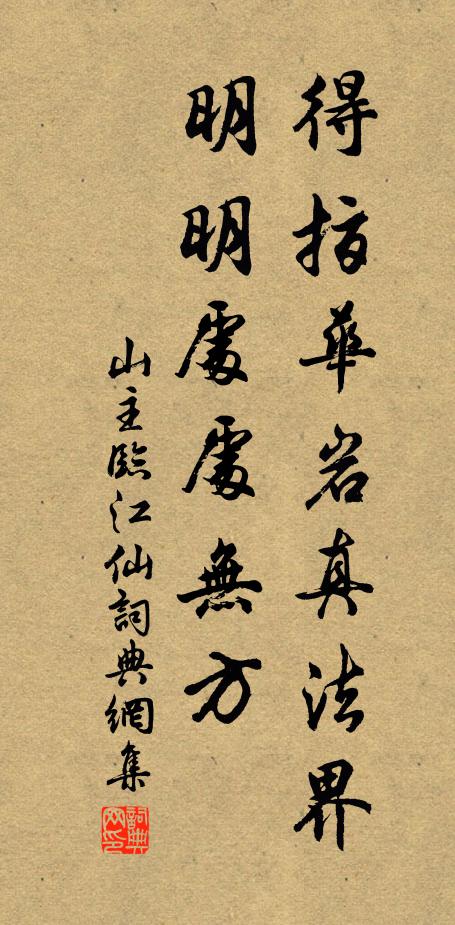 得指華岩真法界
明明處處無方
山主臨江仙詞典網集
詞典網印